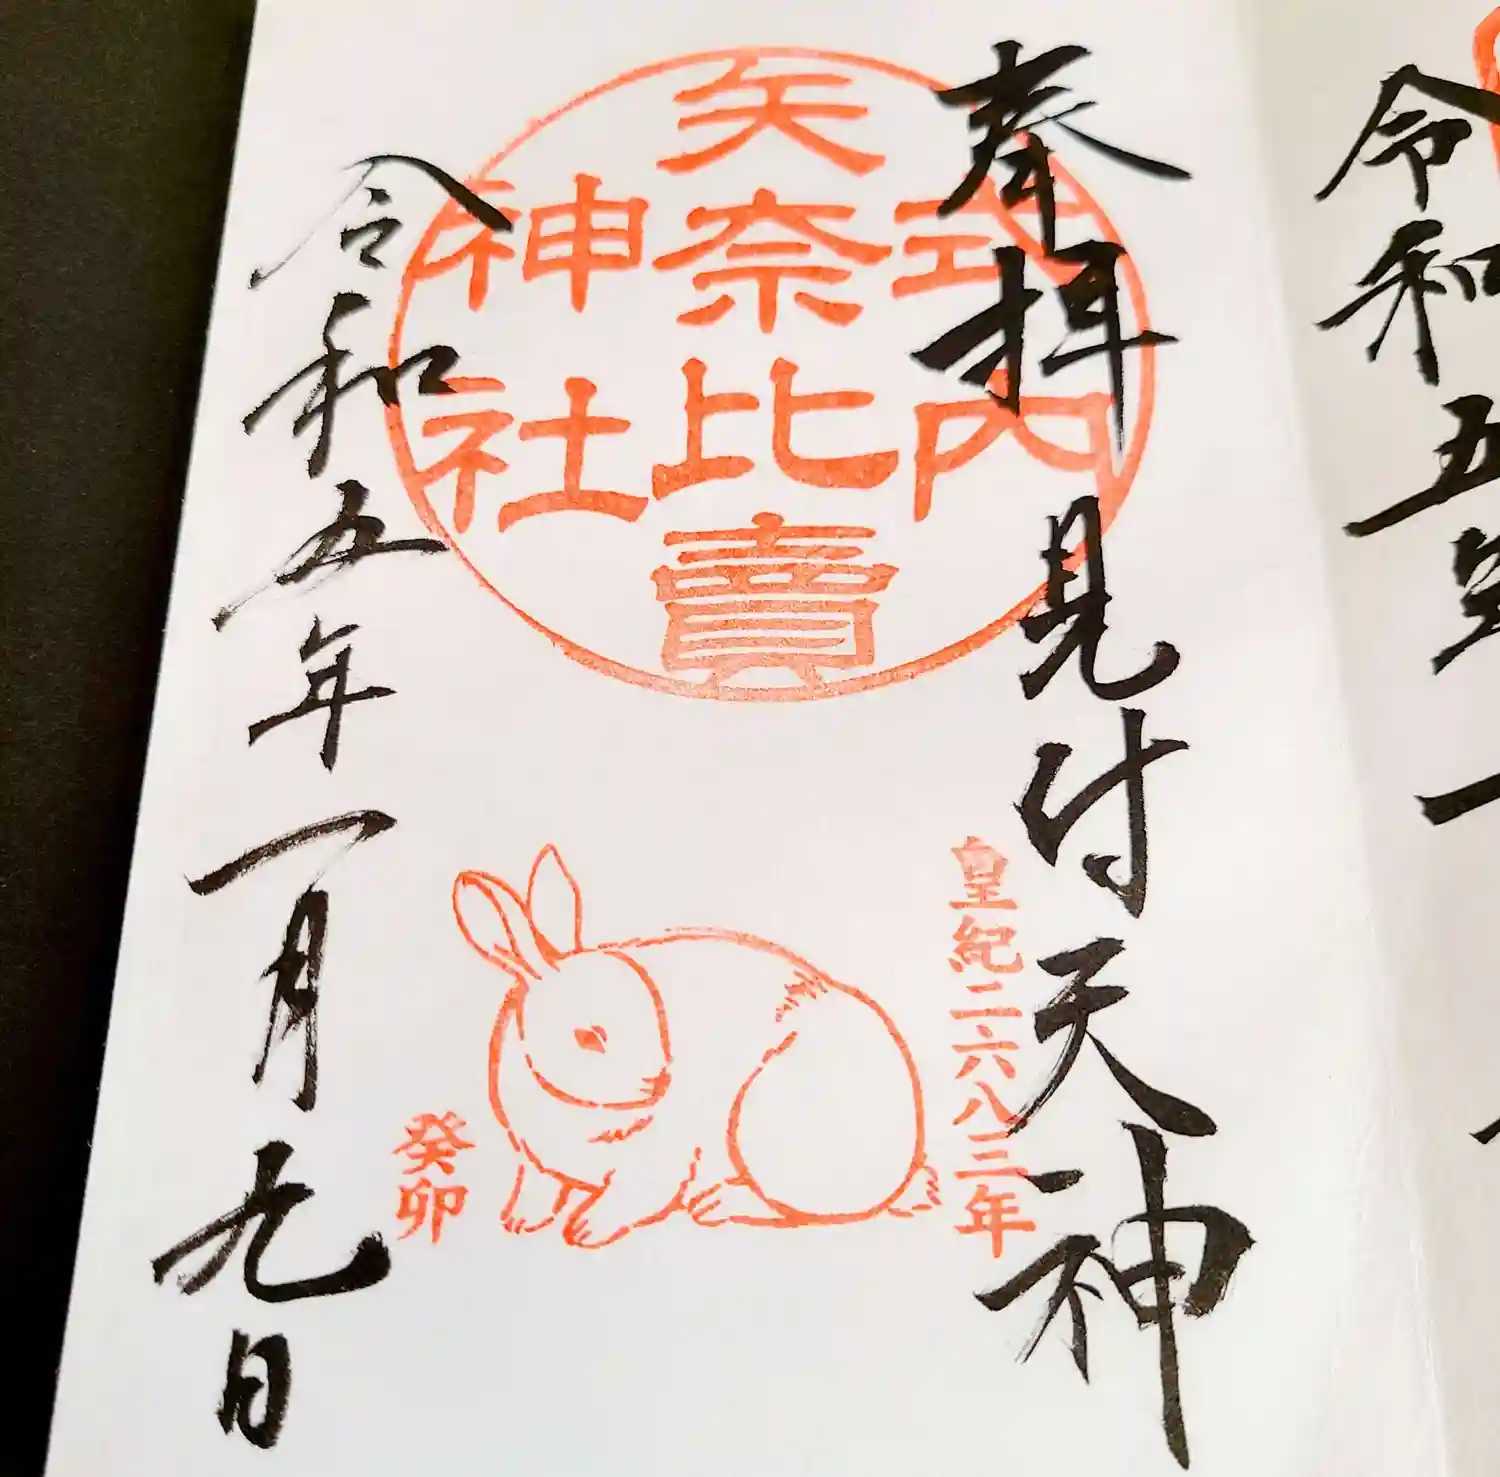 令和五年一
奉拝 見付天神
式内
矢奈比賣
神社
皇紀二六八三年
癸卯
令和五年一月九日